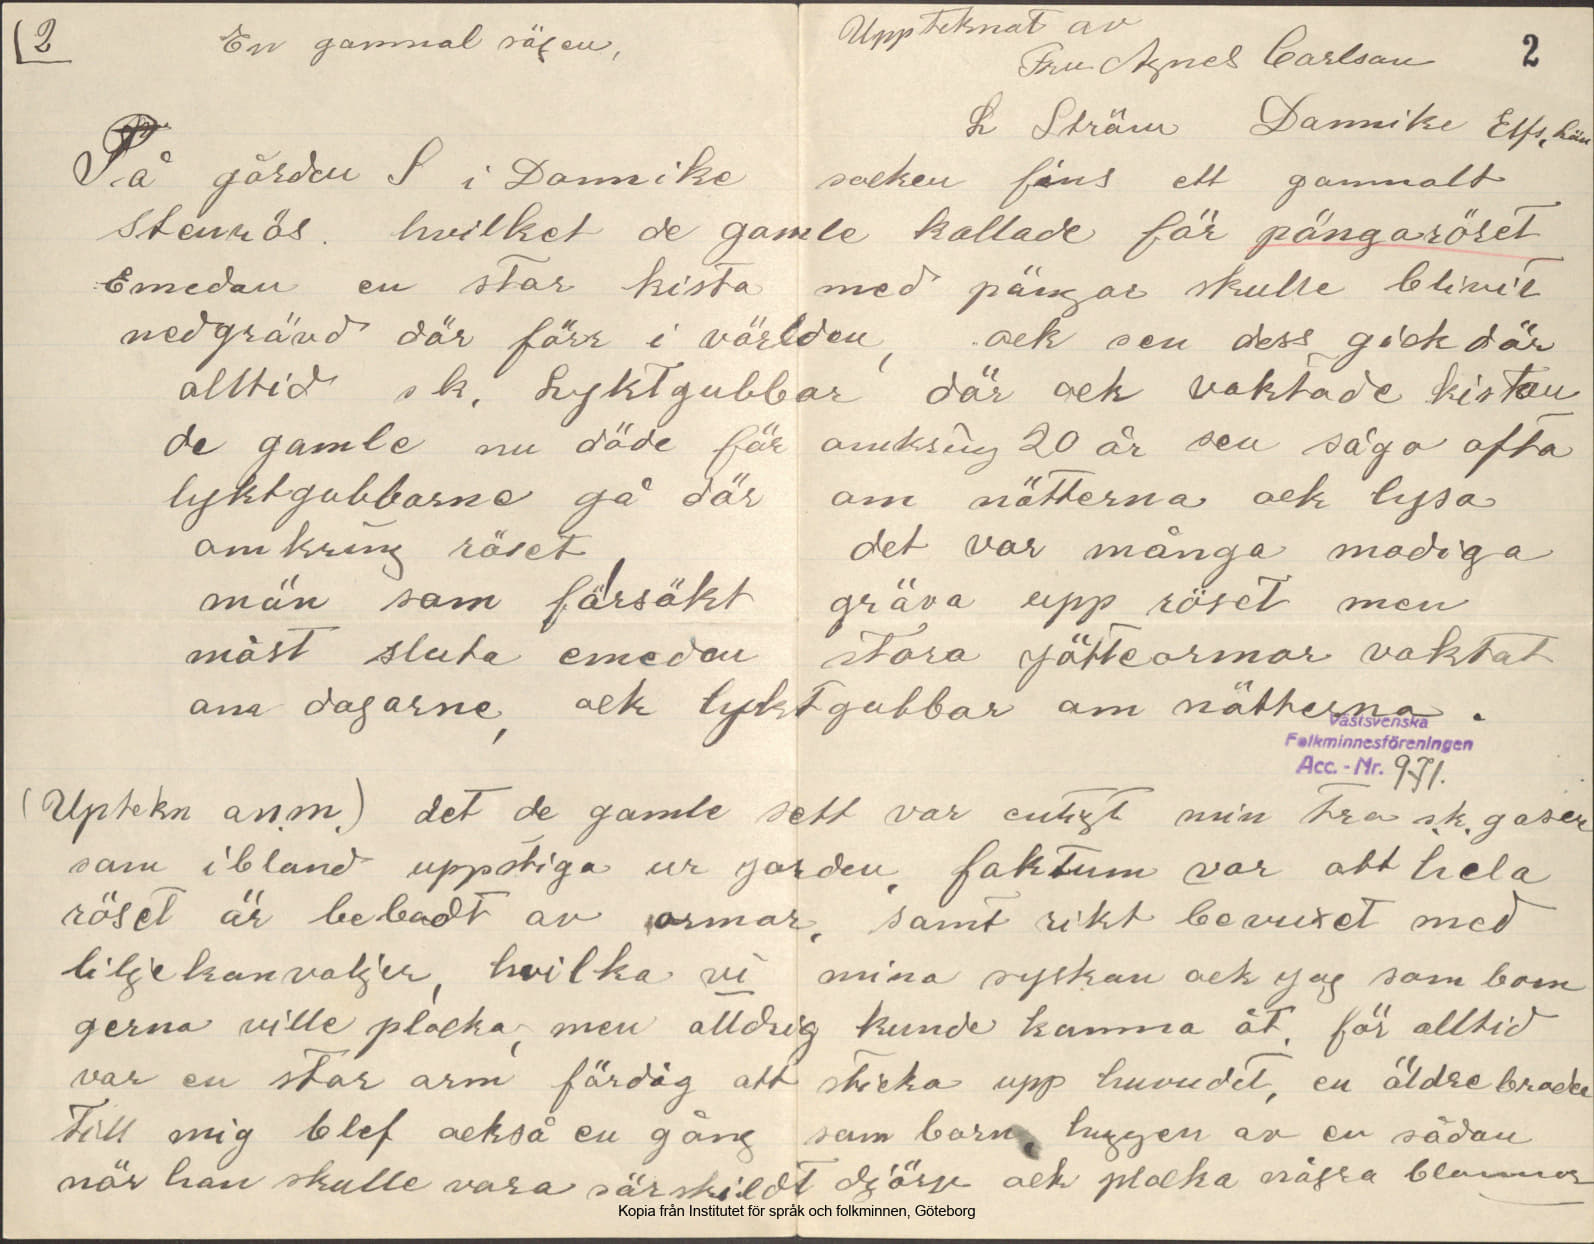 (2 En gammal sägen, Uppteknat av
Fru Agnes Carlson 2
L Ström Dannike Elfs. län
På gården S i Dannike socken fins ett gammalt
stenrös. hvilket de gamle kallade för pängaröset
Emedan en stor kista med pängar skulle blivit
nedgrävd där förr i världen, ock sen dess gick där
alltid sk. Lyktgubbar där ock vaktade kistan
de gamle nu döde för omkring 20 år sen sågo ofta
lyktgubbarne gå där om nätterna ock lysa
omkring röset, det var många modiga
män som försökt gräva upp röset men
måst sluta emedan stora jätteormar vaktat
om dagarne, ock lyktgubbar om nätterna.
Västsvenska
Folkminnesföreningen
Acc.-Nr. 971.
(Uptekn an.m.) det de gamle sett var enligt min tro s.k. gaser
som ibland uppstiga ur jorden, faktum var att hela
röset är bebodt av ormar, samt rikt bevuxet med
liljekonvaljer, hvilka vi mina syskon ock jag som barn
gerna ville plocka, men alldrig kunde komma åt, för alltid
var en stor orm färdig att sticka upp huvudet, en äldre broder
till mig blef också en gång som barn, huggen av en sådan
när han skulle vara särskildt djärv ock plocka några blommor
Kopia från Institutet för språk och folkminnen, Göteborg